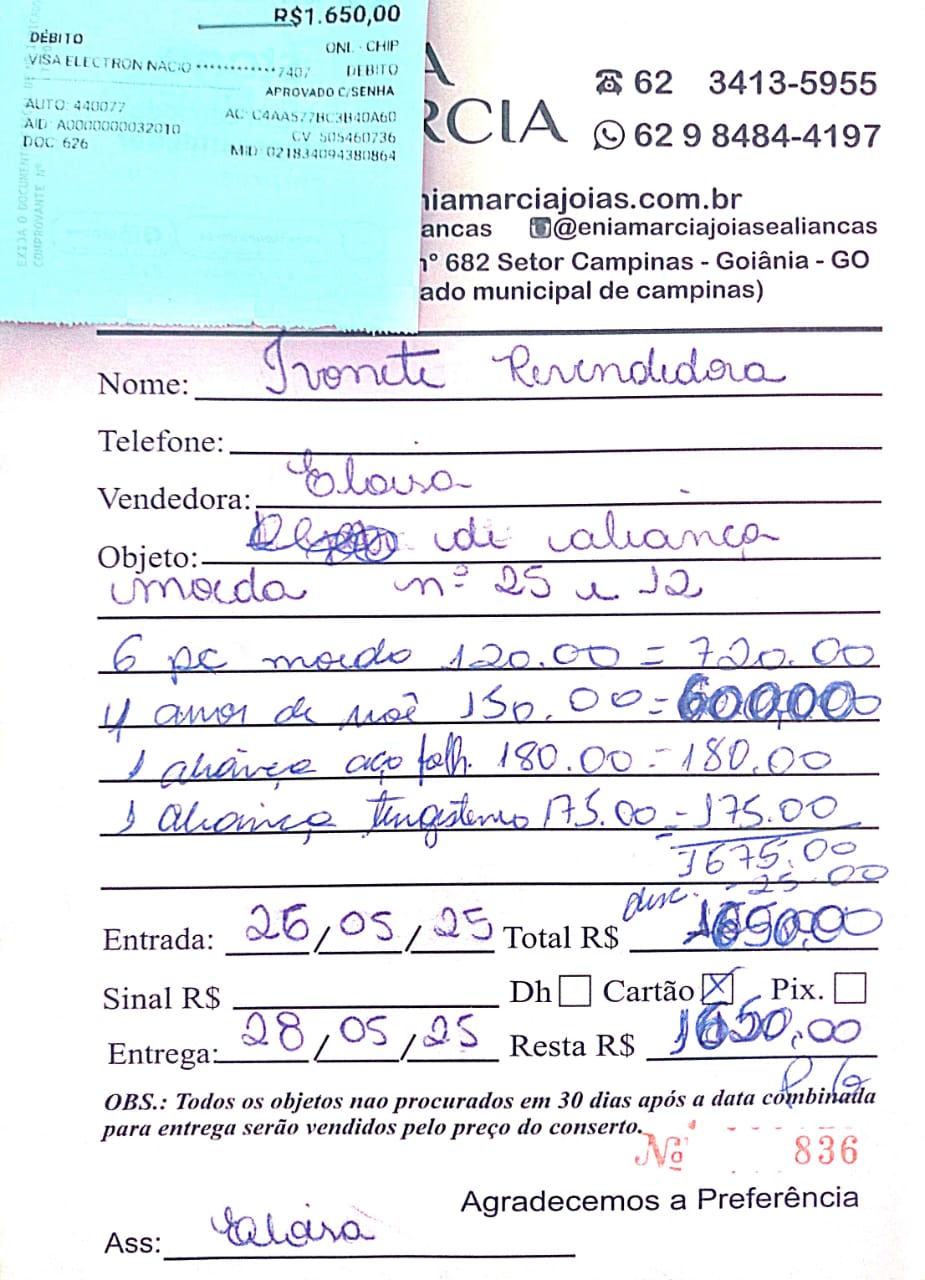 R$1.650,00
DÉBITO
ONL - CHIP
VISA ELECTRON NACIO ************7407 DEBITO
APROVADO C/SENHA
AUTO: 440077 AC: C4AA577BC3B40A60
AID: A0000000032010 CV 505460736
DOC 626 MID: 021834094380864
EXIJA O DOCUMENT
COMPROVANTE Nº
A
RCIA
62 3413-5955
62 9 8484-4197
niamarciajoias.com.br
ancas @eniamarciajoiasealiancas
nº 682 Setor Campinas - Goiânia - GO
ado municipal de campinas)
Nome: Ivonete Revendedora
Telefone:
Vendedora: Eloisa
Objeto: de aliança
moeda nº 25 e 12
6 pc moedo 120.00 = 720.00
4 de 150.00 = 600,00
1 aliança aço 180.00 = 180.00
1 aliança 175.00 = 175.00
1675.00
desc. - 25.00
Entrada: 26/05/25 Total R$ 1650,00
Sinal R$ Dh Cartão X Pix.
Entrega: 28/05/25 Resta R$ 1650,00
OBS.: Todos os objetos nao procurados em 30 dias após a data combinada
para entrega serão vendidos pelo preço do conserto.
Nº 836
Agradecemos a Preferência
Ass: Eloisa